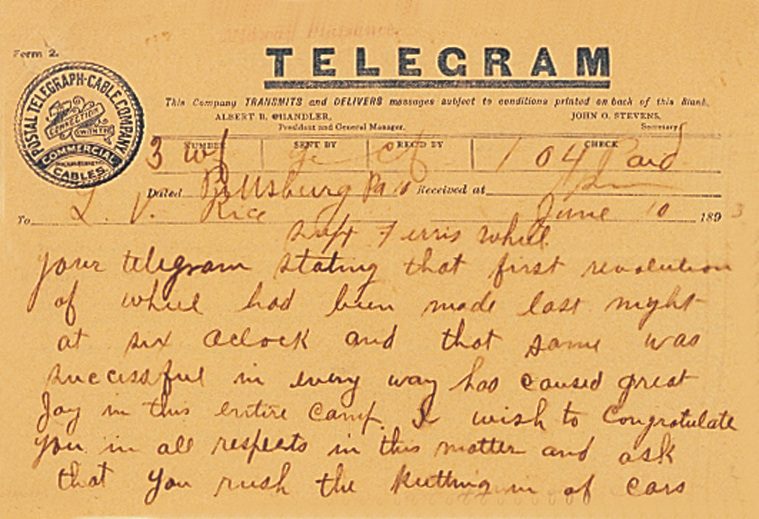 Form 2.
TELEGRAM
POSTAL TELEGRAPH-CABLE COMPANY
COMMERCIAL
CABLES.
This Company TRANSMITS and DELIVERS messages subject to conditions printed on back of this Blank.
ALBERT B. CHANDLER, JOHN O. STEVENS,
President and General Manager. Secretary
NUMBER SENT BY REC'D BY CHECK
3 104 Paid
Dated Pittsburg Pa Received at
To L. V. Rice June 10 1893
Supt Ferris Wheel
Your telegram stating that first revolution
of wheel had been made last night
at six oclock and that same was
successful in every way has caused great
Joy in this entire camp. I wish to Congratulate
you in all respects in this matter and ask
that you rush the putting in of cars